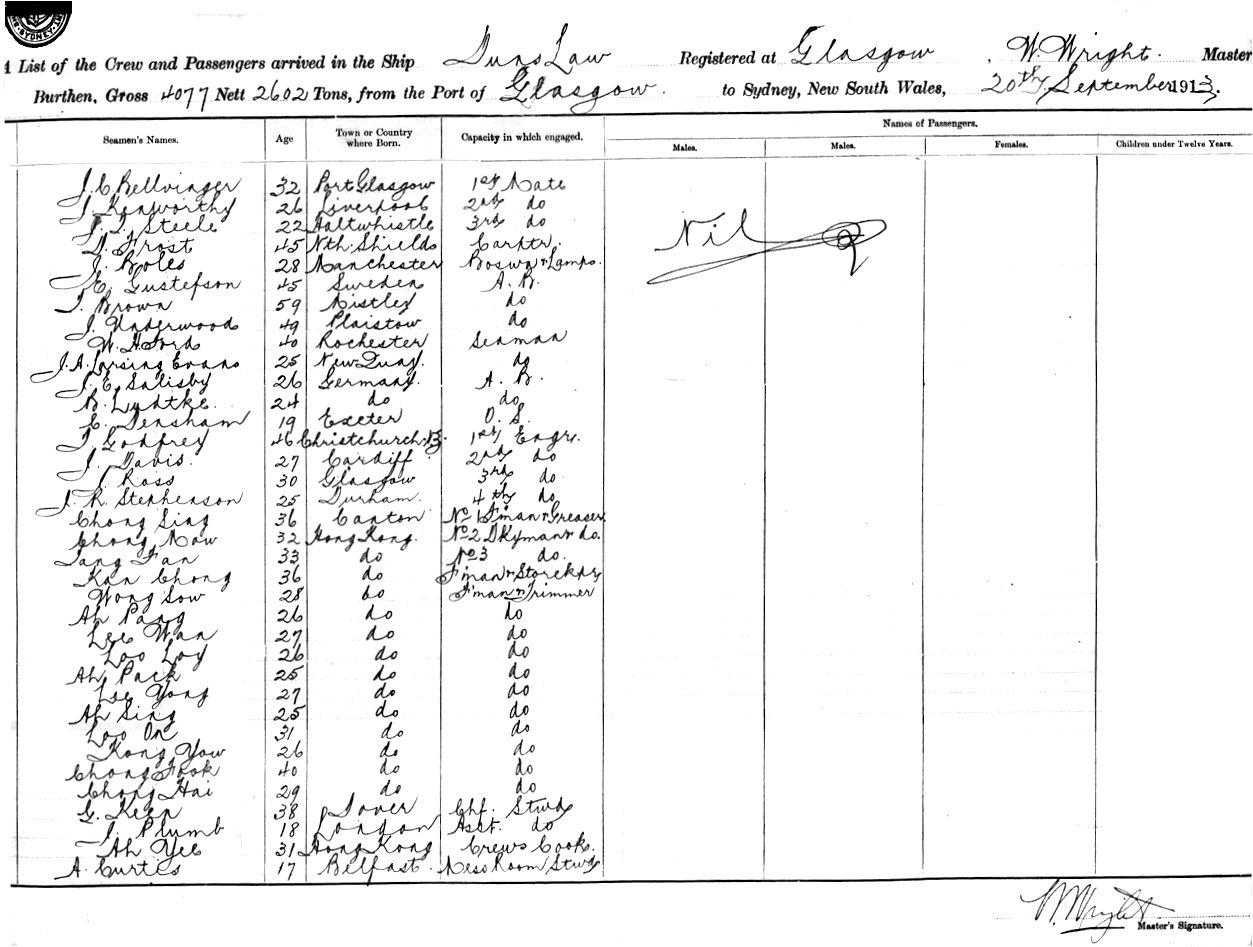 SYDNEY
A List of the Crew and Passengers arrived in the Ship Duns Law Registered at Glasgow W. Wright. Master,
Burthen, Gross 4077 Nett 2602 Tons, from the Port of Glasgow. to Sydney, New South Wales, 20th September 1913.
Seamen's Names. Age Town or Country where Born. Capacity in which engaged. Names of Passengers.
Males. Males. Females. Children under Twelve Years.
J. C. Bellvinger 32 Port Glasgow 1st Mate
J. Kenworthy 26 Liverpool 2nd do
J. Steele 22 Haltwhistle 3rd do
Nil
D. Frost 45 Nth Shields Carptr.
J. Boles 28 Manchester Boswn & Lamps.
E. Gustefson 45 Sweden A. B.
T. Brown 59 Mistley do
J. Underwood 49 Plaistow do
W. H. Ford 40 Rochester Seaman
J. A. Larsing Evans 25 New Quay. do
J. E. Salisby 26 Germany. A. B.
B. Ludtke. 24 do do
C. Densham 19 Exeter O. S.
T. Godfrey 46 Christchurch 1st Engr.
J. Davis. 27 Cardiff 2nd do
J. Ross 30 Glasgow 3rd do
J. R. Stephenson 25 Durham. 4th do
Chong Sing 36 Canton No 1 F'man & Greaser
Chong Now 32 Hong Kong. No 2 Dkyman & do.
Tang Fan 33 do No 3 do.
Kan Chong 36 do F'man & Storekpr
Wong Sow 28 do F'man & Trimmer
Ah Pang 26 do do
Lee Wan 27 do do
Loo Loy 26 do do
Ah Pack 25 do do
Lee Yong 27 do do
Ah Sing 25 do do
Loo On 31 do do
Kong Yow 26 do do
Chong Fook 40 do do
Chong Hai 29 do do
G. Keen 38 Dover Chf. Stwd
J. Plumb 18 London Asst. do
Ah Yee 31 Hong Kong Crews Cook.
A. Curtis 17 Belfast. Mess Room Stwd
W Wright
Master's Signature.